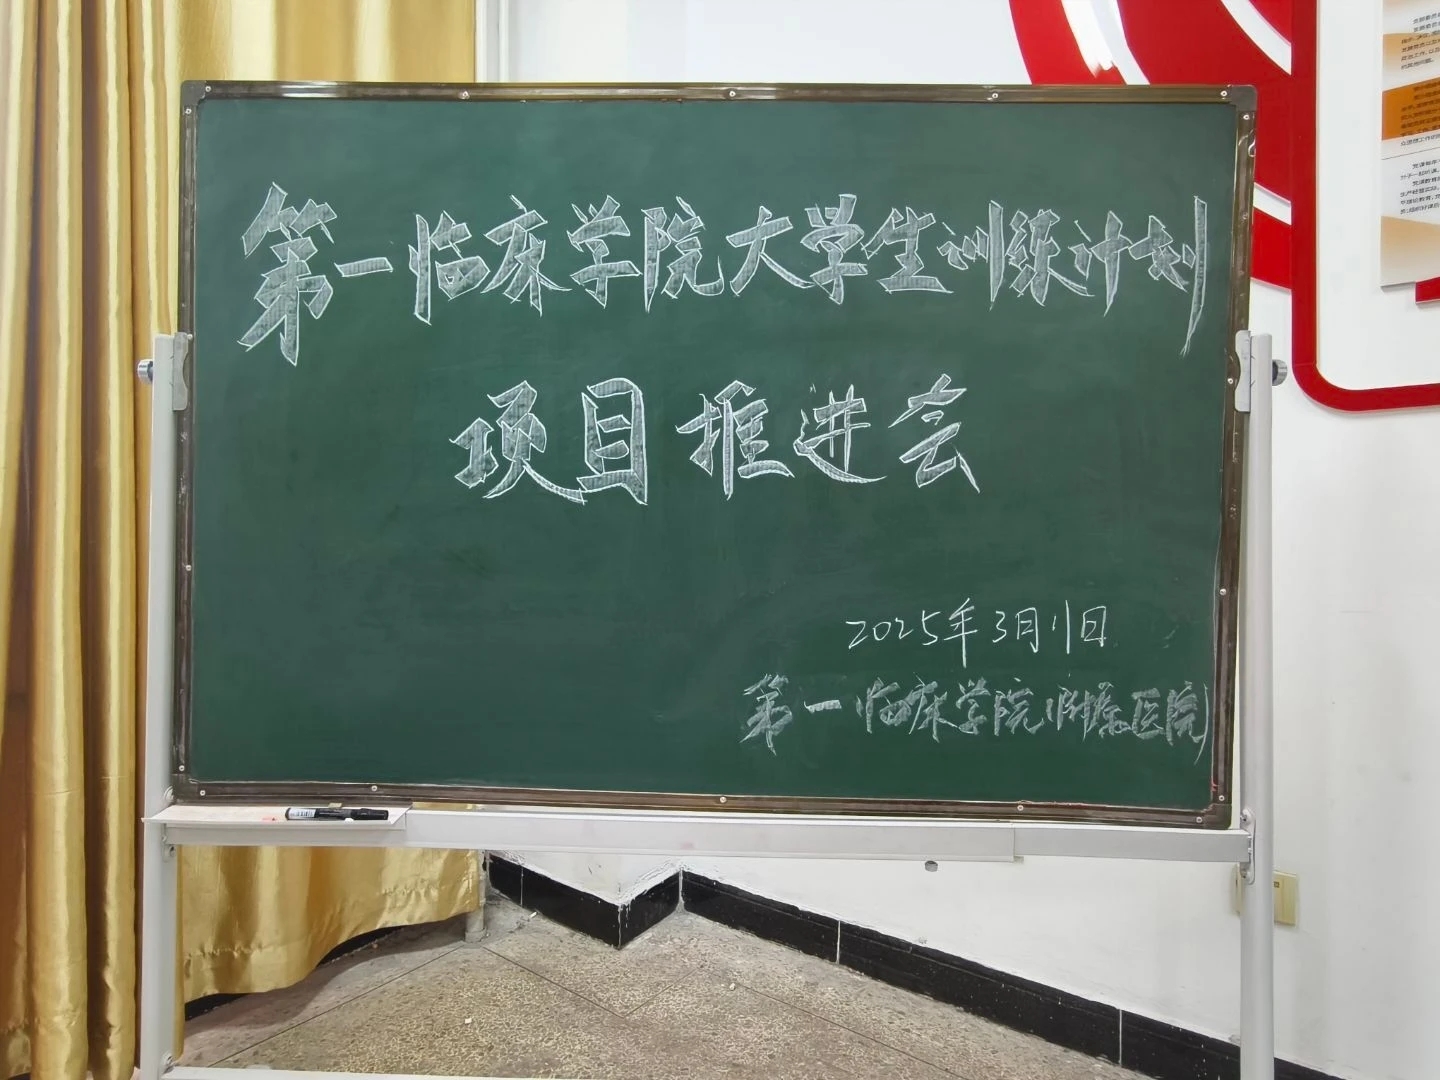 第一临床学院大学生训练计划
项目推进会
2025年3月11日
第一临床学院(附属医院)